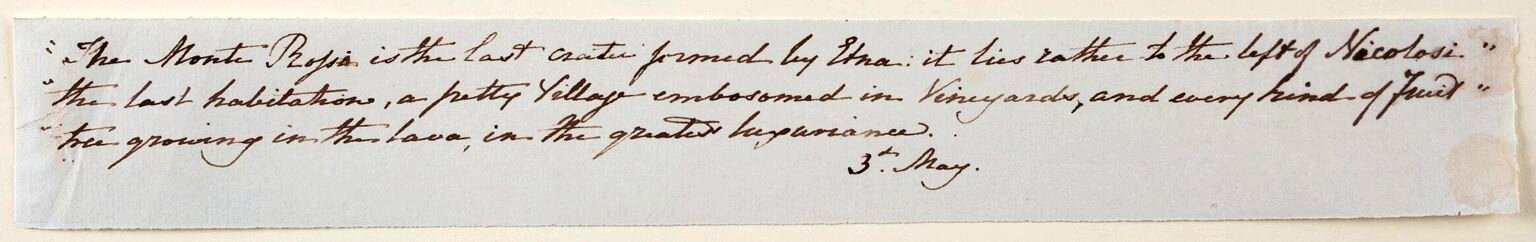 "The Monte Rossi is the last crater formed by Etna: it lies rather to the left of Nicolosi "
" the last habitation, a petty Village embosomed in Vineyards, and every kind of Fruit "
" tree growing in the lava, in the greatest luxuriance.
3d. May.